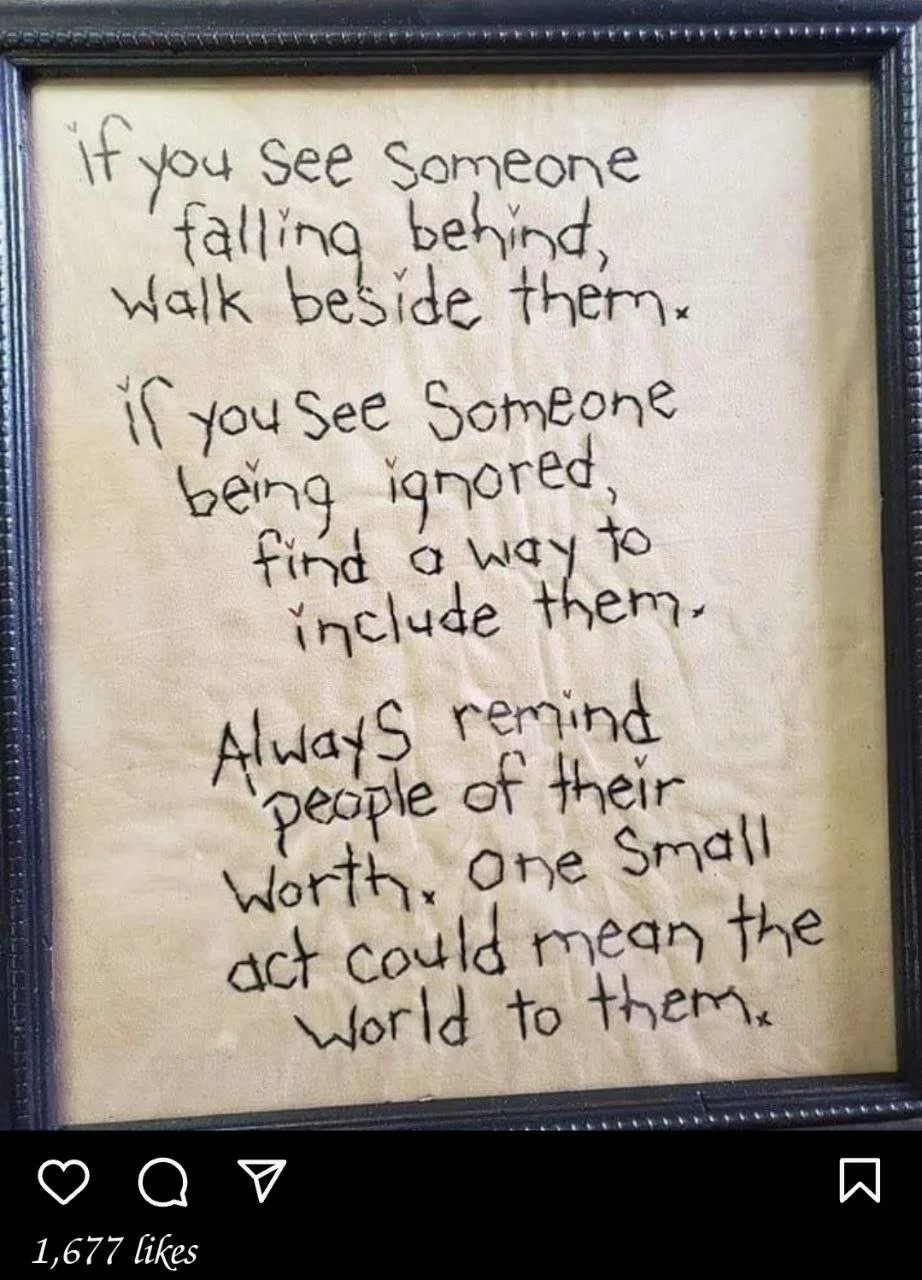 if you see someone
falling behind,
walk beside them.
if you see someone
being ignored,
find a way to
include them.
Always remind
people of their
worth. one small
act could mean the
world to them.
1,677 likes